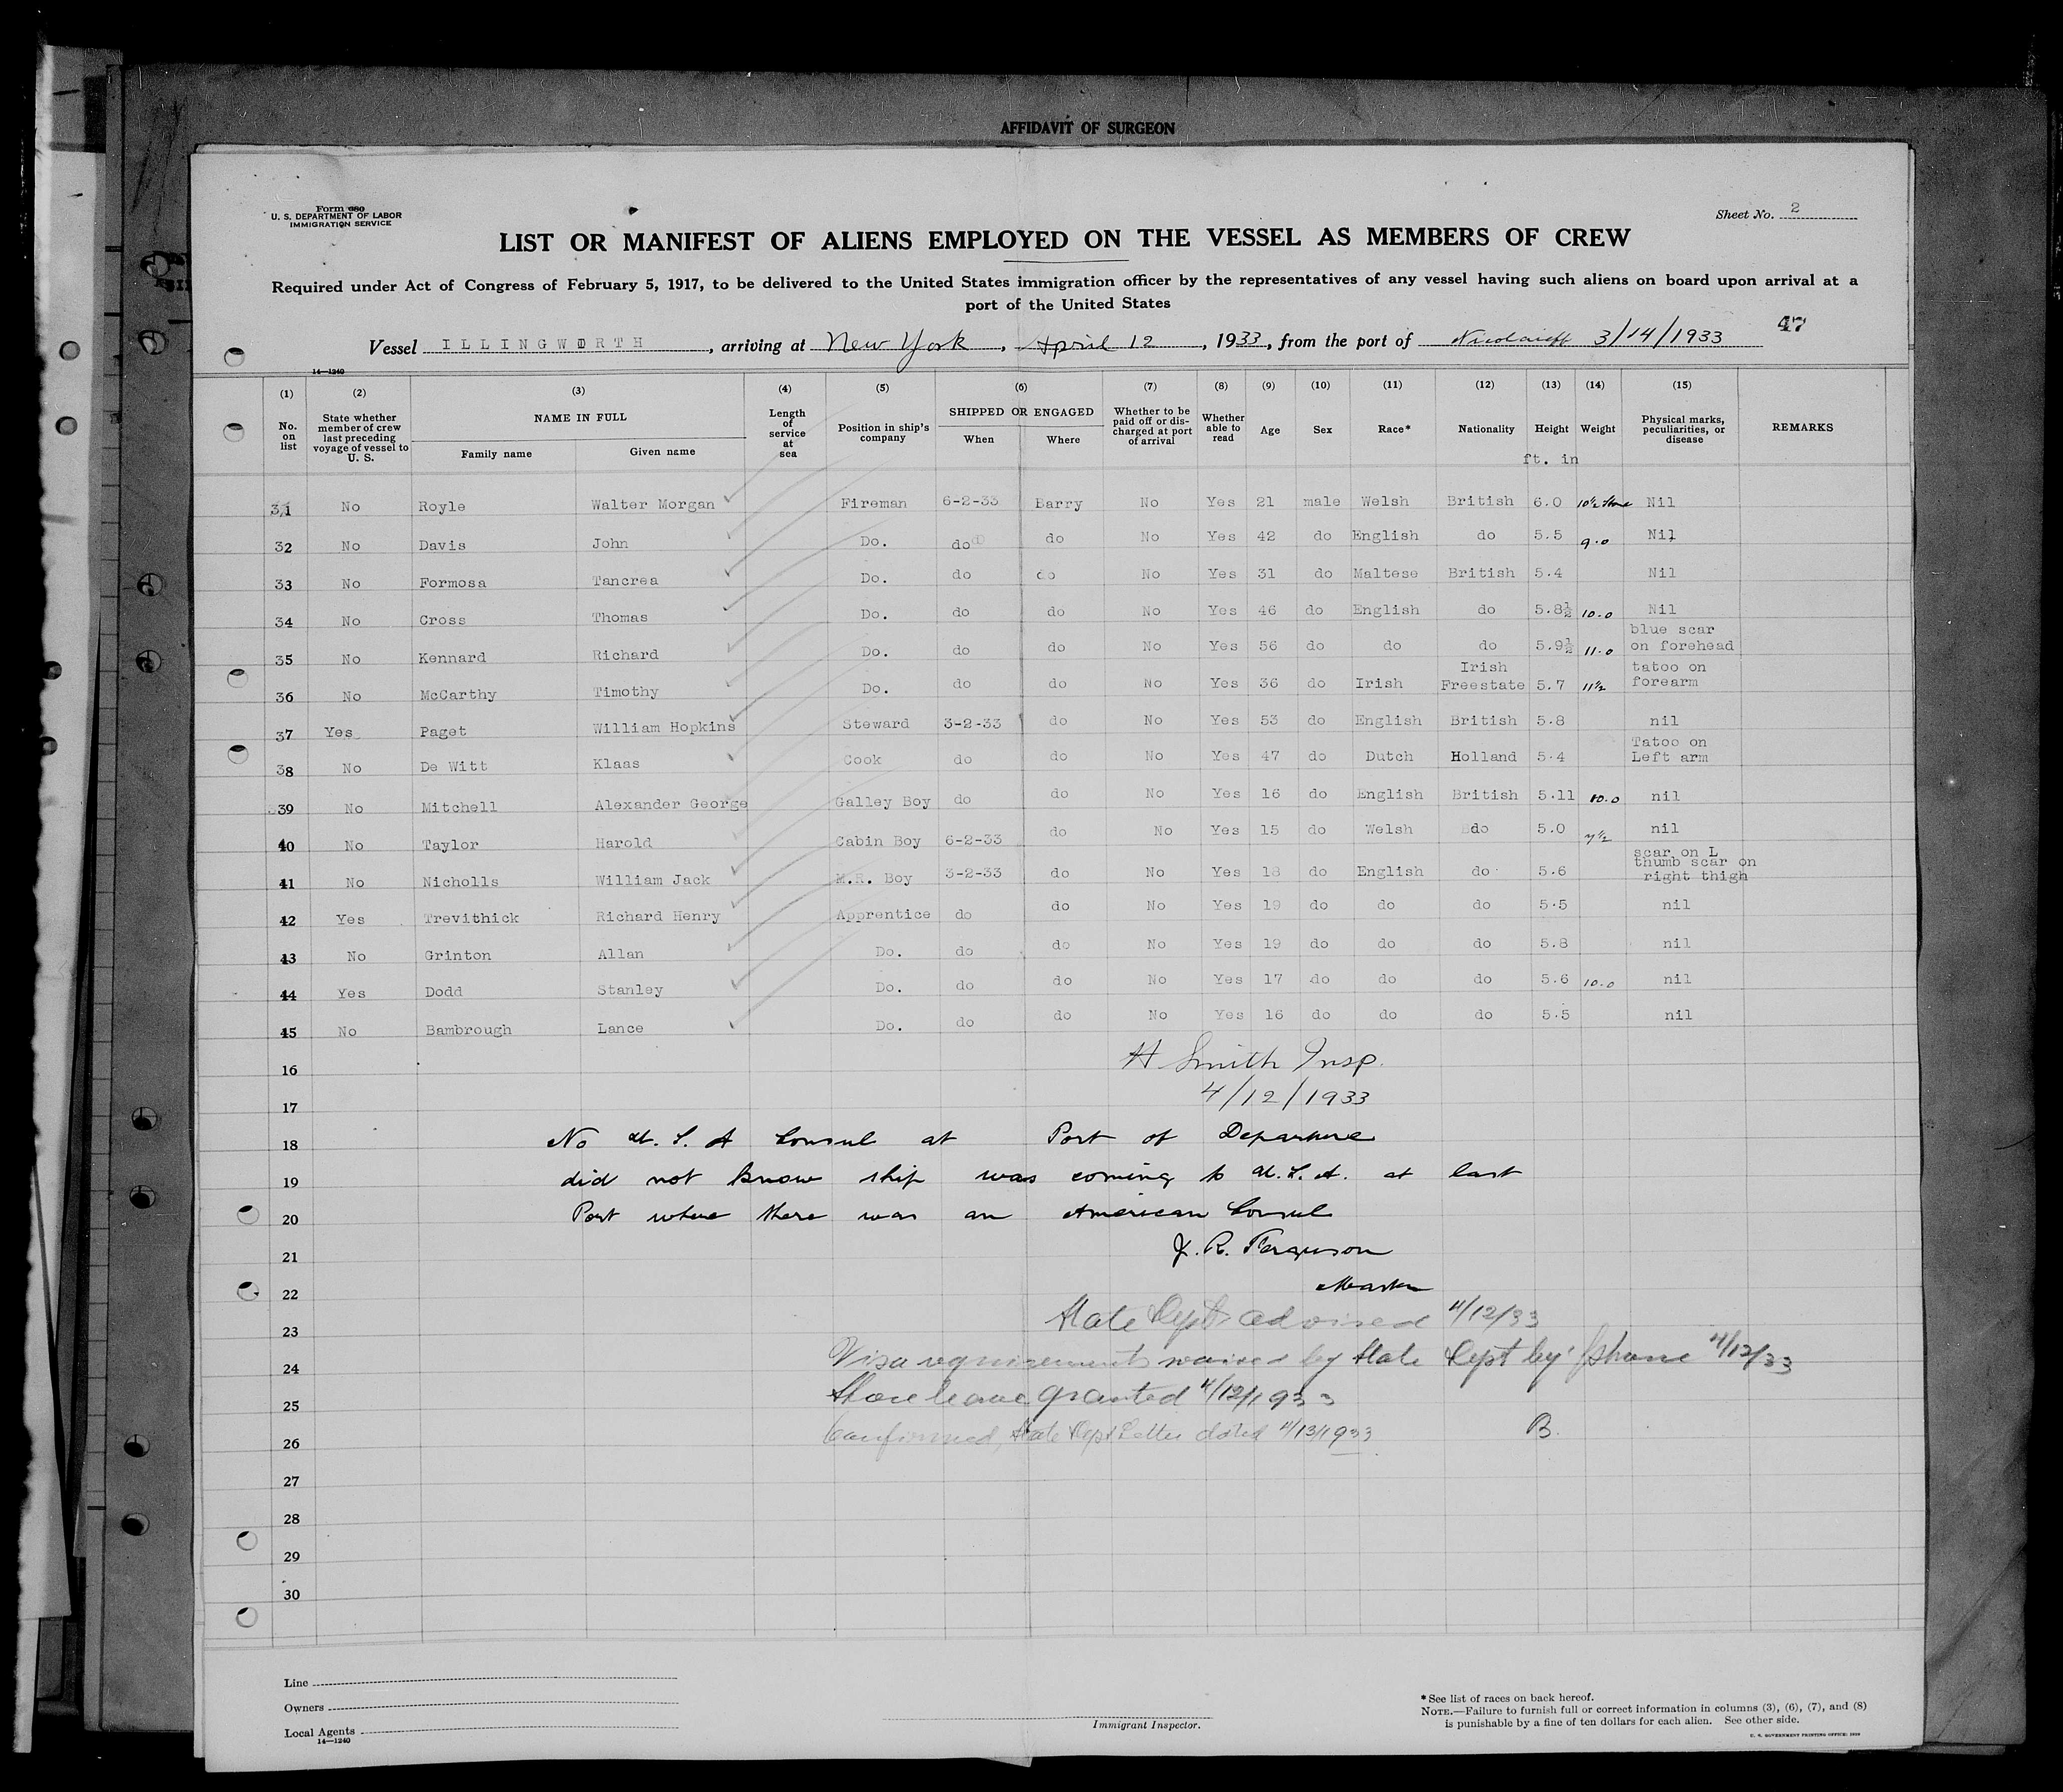 AFFIDAVIT OF SURGEON
Form 680
U. S. DEPARTMENT OF LABOR
IMMIGRATION SERVICE
Sheet No. 2
LIST OR MANIFEST OF ALIENS EMPLOYED ON THE VESSEL AS MEMBERS OF CREW
Required under Act of Congress of February 5, 1917, to be delivered to the United States immigration officer by the representatives of any vessel having such aliens on board upon arrival at a
port of the United States
47
Vessel ILLINGWORTH, arriving at New York, April 12, 1933, from the port of Nicolaieff 3/14/1933
14—1240
(1) (2) (3) (4) (5) (6) (7) (8) (9) (10) (11) (12) (13) (14) (15)
No. on list State whether member of crew last preceding voyage of vessel to U. S. NAME IN FULL Family name Given name Length of service at sea Position in ship's company SHIPPED OR ENGAGED When Where Whether to be paid off or discharged at port of arrival Whether able to read Age Sex Race* Nationality Height Weight Physical marks, peculiarities, or disease REMARKS
ft. in
31 No Royle Walter Morgan Fireman 6-2-33 Barry No Yes 21 male Welsh British 6.0 10½ Stone Nil
32 No Davis John Do. do do No Yes 42 do English do 5.5 9.0 Nil
33 No Formosa Tancrea Do. do do No Yes 31 do Maltese British 5.4 Nil
34 No Cross Thomas Do. do do No Yes 46 do English do 5.8½ 10.0 Nil
35 No Kennard Richard Do. do do No Yes 56 do do do 5.9½ 11.0 blue scar on forehead
36 No McCarthy Timothy Do. do do No Yes 36 do Irish Irish Freestate 5.7 11½ tatoo on forearm
37 Yes Paget William Hopkins Steward 3-2-33 do No Yes 53 do English British 5.8 nil
38 No De Witt Klaas Cook do do No Yes 47 do Dutch Holland 5.4 Tatoo on Left arm
39 No Mitchell Alexander George Galley Boy do do No Yes 16 do English British 5.11 10.0 nil
40 No Taylor Harold Cabin Boy 6-2-33 do No Yes 15 do Welsh do 5.0 7½ nil
41 No Nicholls William Jack M.R. Boy 3-2-33 do No Yes 18 do English do 5.6 scar on L thumb scar on right thigh
42 Yes Trevithick Richard Henry Apprentice do do No Yes 19 do do do 5.5 nil
43 No Grinton Allan Do. do do No Yes 19 do do do 5.8 nil
44 Yes Dodd Stanley Do. do do No Yes 17 do do do 5.6 10.0 nil
45 No Bambrough Lance Do. do do No Yes 16 do do do 5.5 nil
16 H Smith Insp.
17 4/12/1933
18 No U. S. A Consul at Port of Departure
19 did not know ship was coming to U.S.A. at last
20 Port where there was an American Consul
21 J. R. Ferguson
22 Master
23 State Dept advised 4/12/33
24 Visa requirements waived by State Dept by phone 4/12/33
25 Shore leave granted 4/12/1933
26 Confirmed, State Dept Letter dated 4/13/1933 B.
27
28
29
30
Line
Owners
Local Agents
14—1240
Immigrant Inspector.
*See list of races on back hereof.
NOTE.—Failure to furnish full or correct information in columns (3), (6), (7), and (8)
is punishable by a fine of ten dollars for each alien. See other side.
U. S. GOVERNMENT PRINTING OFFICE